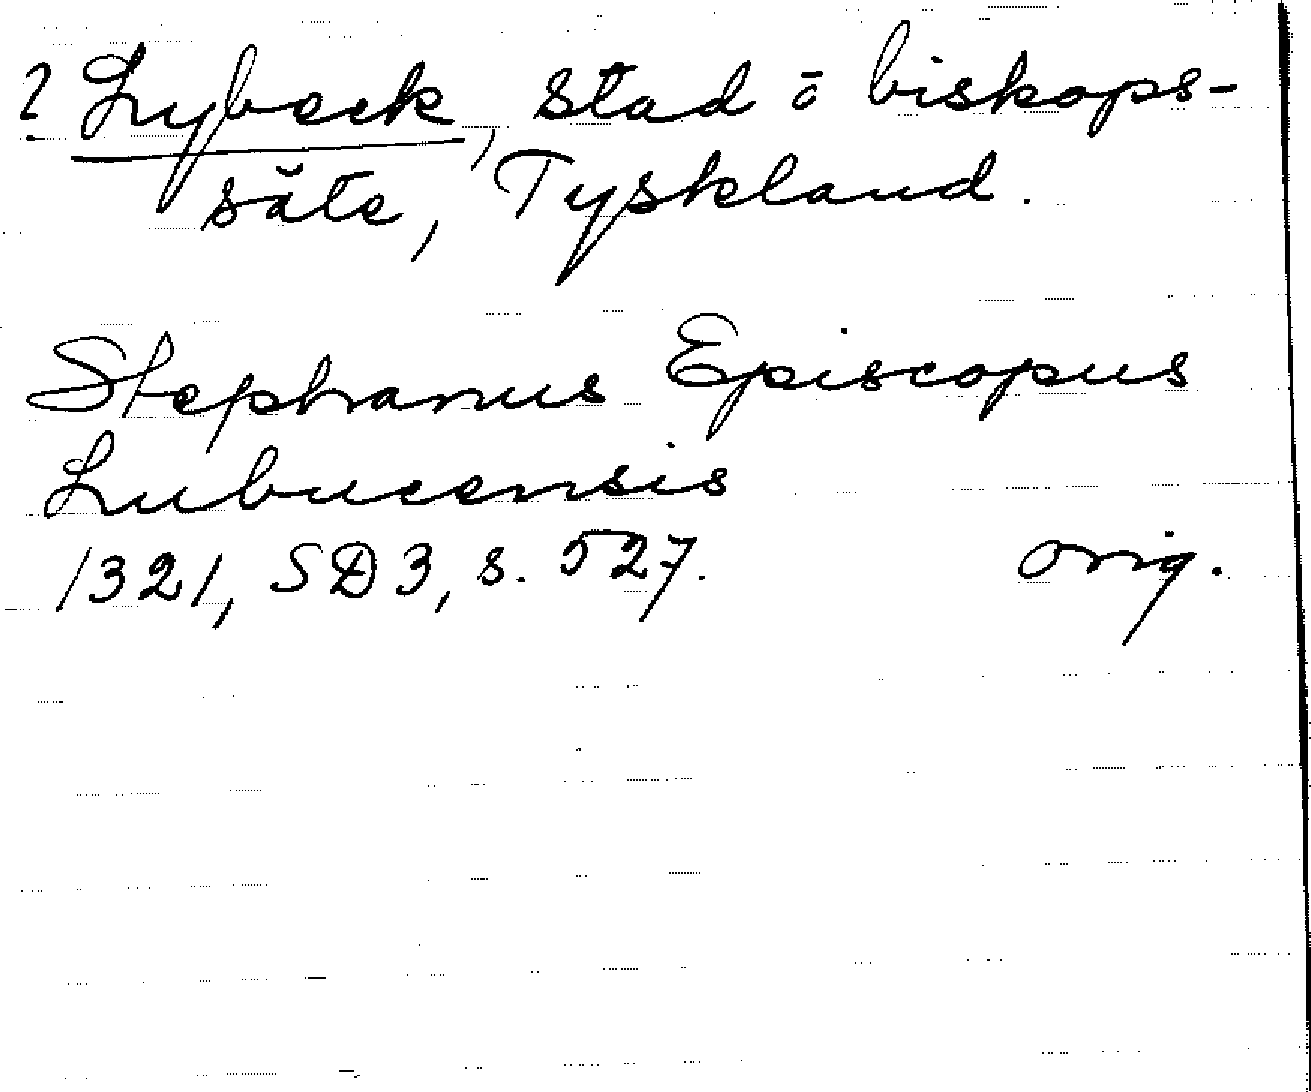 ? Lybeck, stad o biskops-
säte, Tyskland.
Stephanus Episcopus
Lubucensis
1321, SD3, s. 527. orig.